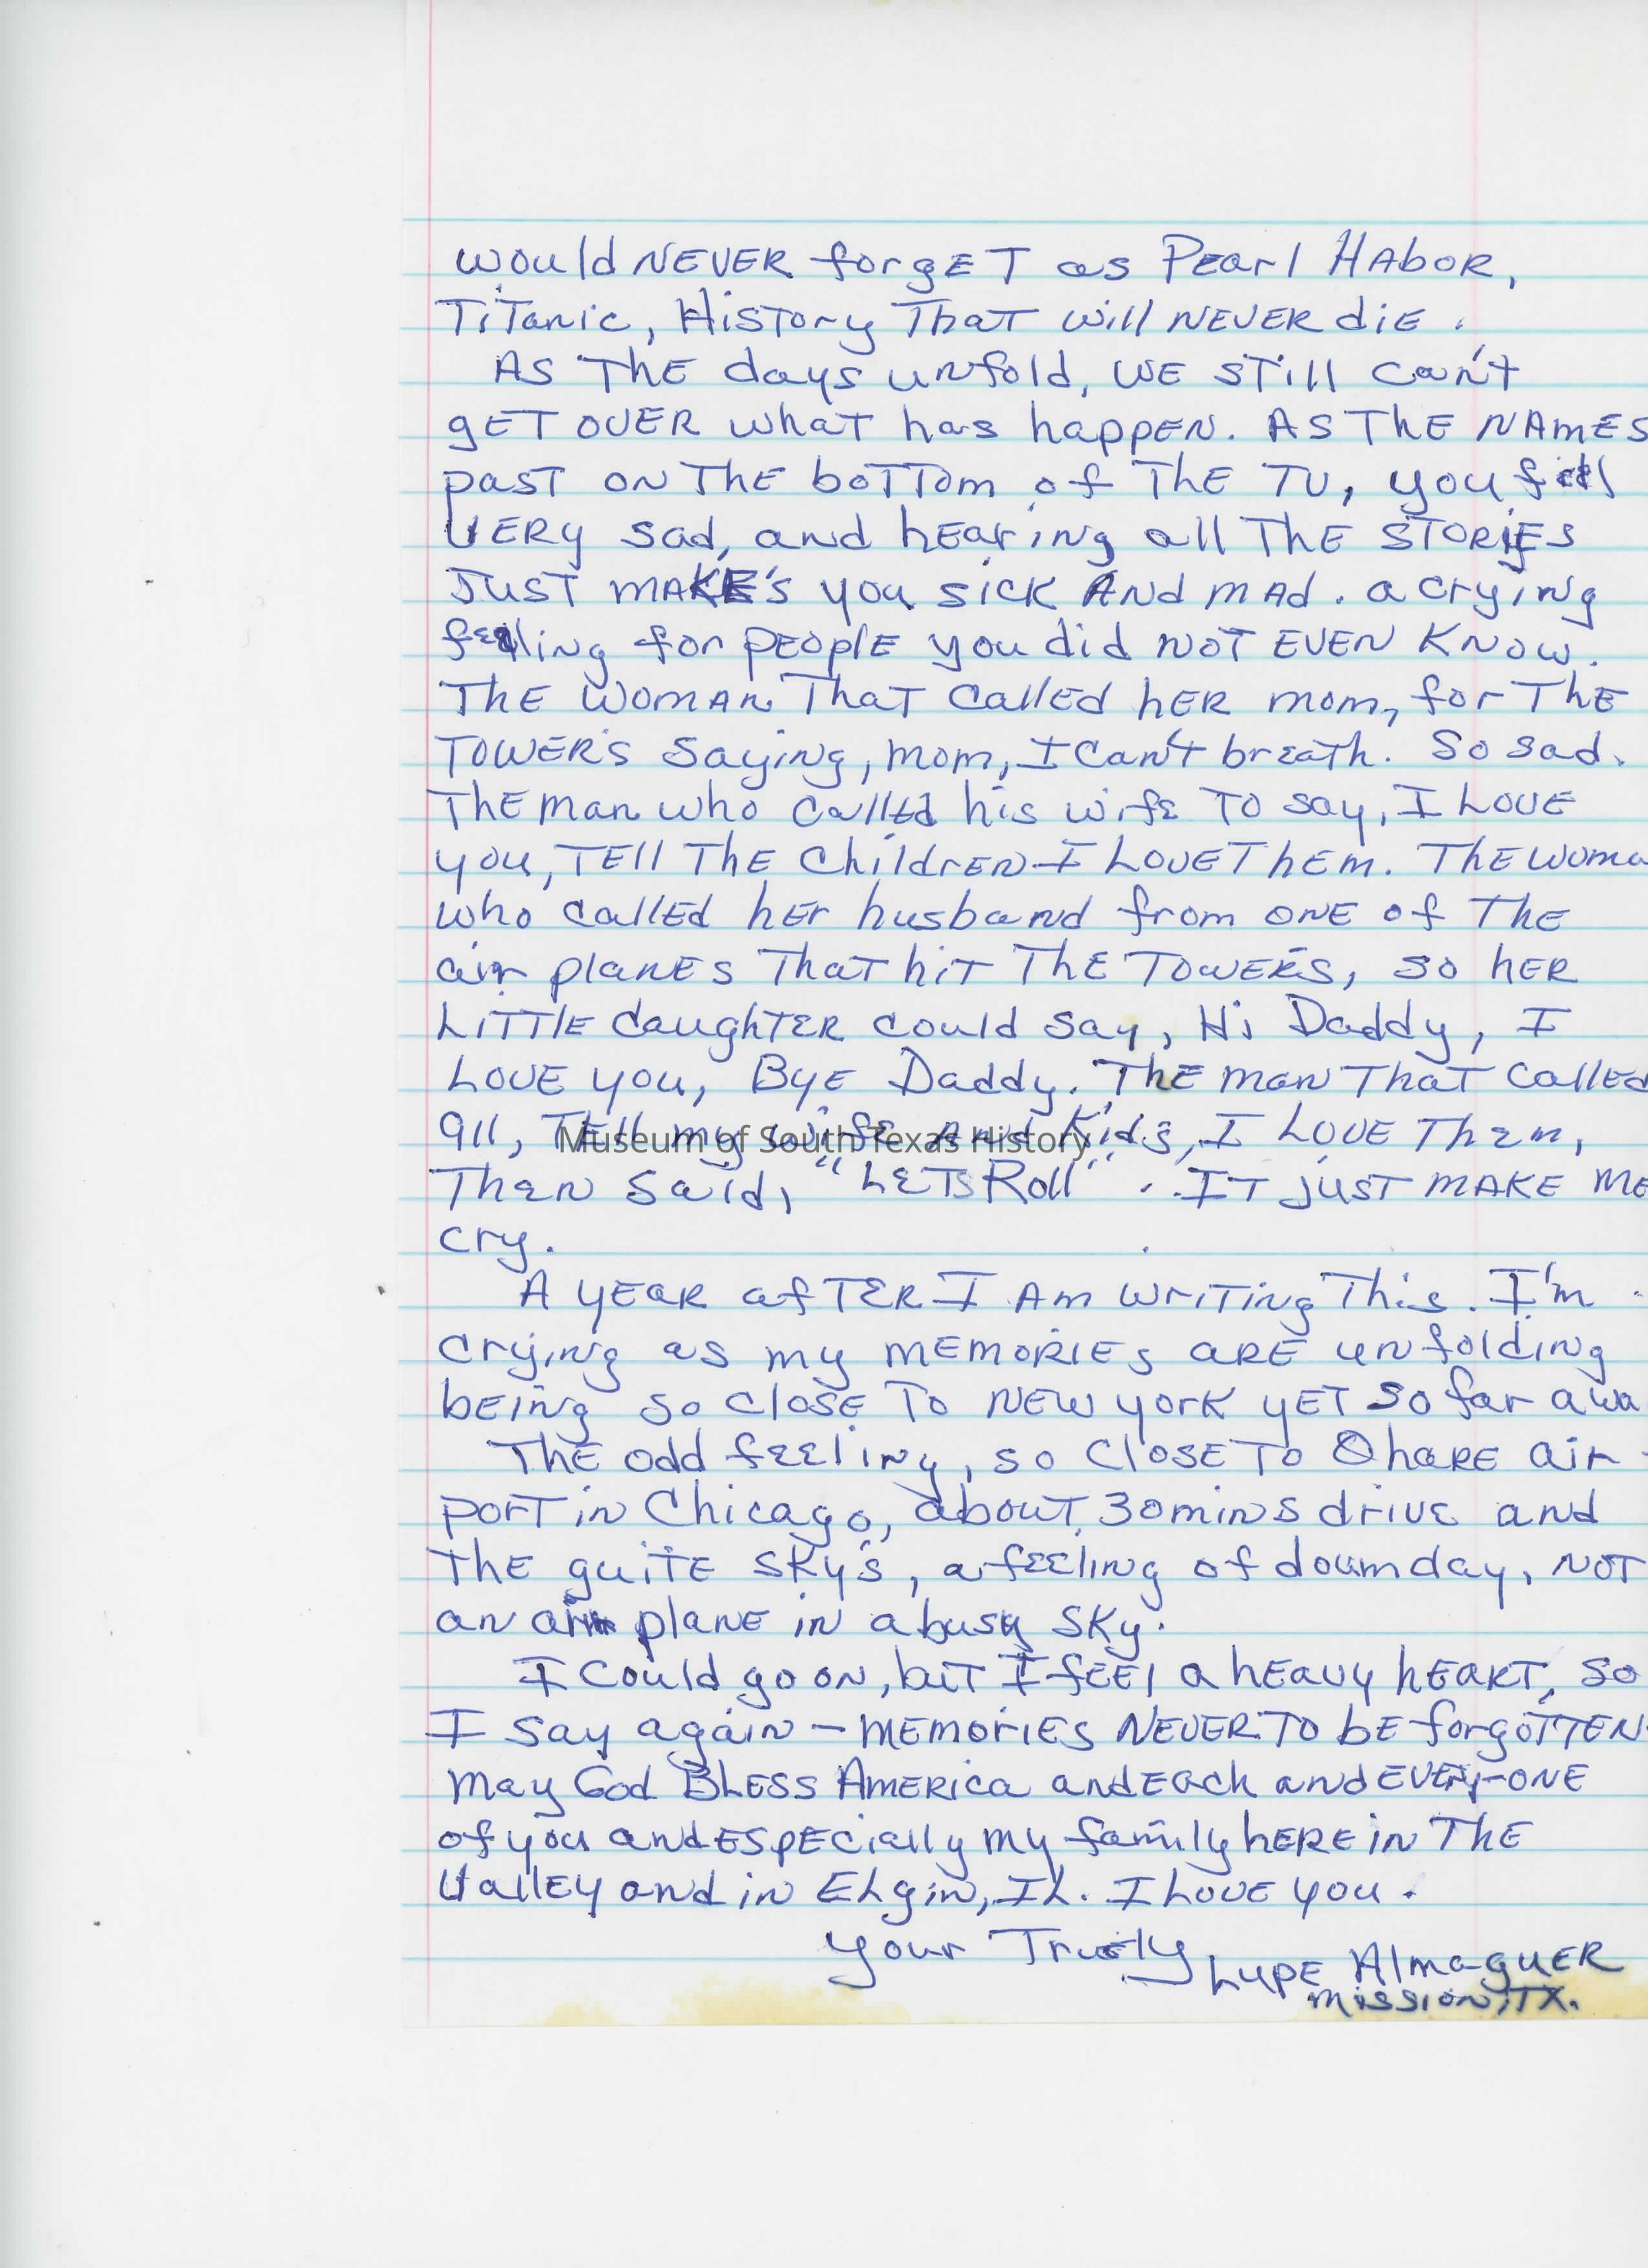 would NEVER forgET as Pearl HAboR,
TiTanic, HisTory ThaT will NEVER diE.
AS ThE days unfold, WE sTill can't
gET OVER whaT has happEN. AS ThE NAMES
pasT ON ThE boTTom of ThE TV, you feel
VERy sad, and hEaring all ThE STORIES
JusT MAKE'S you sick ANd MAd. a crying
feeling for pEOplE you did NOT EVEN KNOw.
ThE WOMAN ThaT CallEd hER mom, for ThE
TOWER'S Saying, mom, I Can't breath. So sad.
ThE man who called his wife TO say, I LOVE
you, TEll ThE ChildrEN I LOVE ThEM. ThE woma
who callEd hEr husband from ONE of ThE
air planES ThaT hiT ThE TOWER'S, so hER
LiTTlE daughTER could say, Hi Daddy, I
LOVE you, ByE Daddy. ThE man ThaT CallEd
911, TEll my wife And Kids, I LOVE Them,
Museum of South Texas History
Then Said, "LETS Roll". IT jusT MAKE ME
cry.
A yEAR afTER I AM wriTing This. I'm
crying as my MEMORIES ARE unfolding
bEing so closE To NEW york yET so far awa
ThE odd feeling, so closE To OhaRE air-
porT in Chicago, abouT 30 mins drive and
ThE quiTE SKy's, a feeling of doumday, NOT
an air planE in a busy SKy.
I could go on, buT I fEEl a hEAvy hEART, so
I say again - MEMORIES NEVER TO bE forgoTTEN.
may God BLESS AMERica and Each and EVERy-ONE
of you and ESpEcially my family hERE iN ThE
VallEy and in ELgin, IL. I LOVE you.
your Truely LupE AlmaguER
mission, TX.